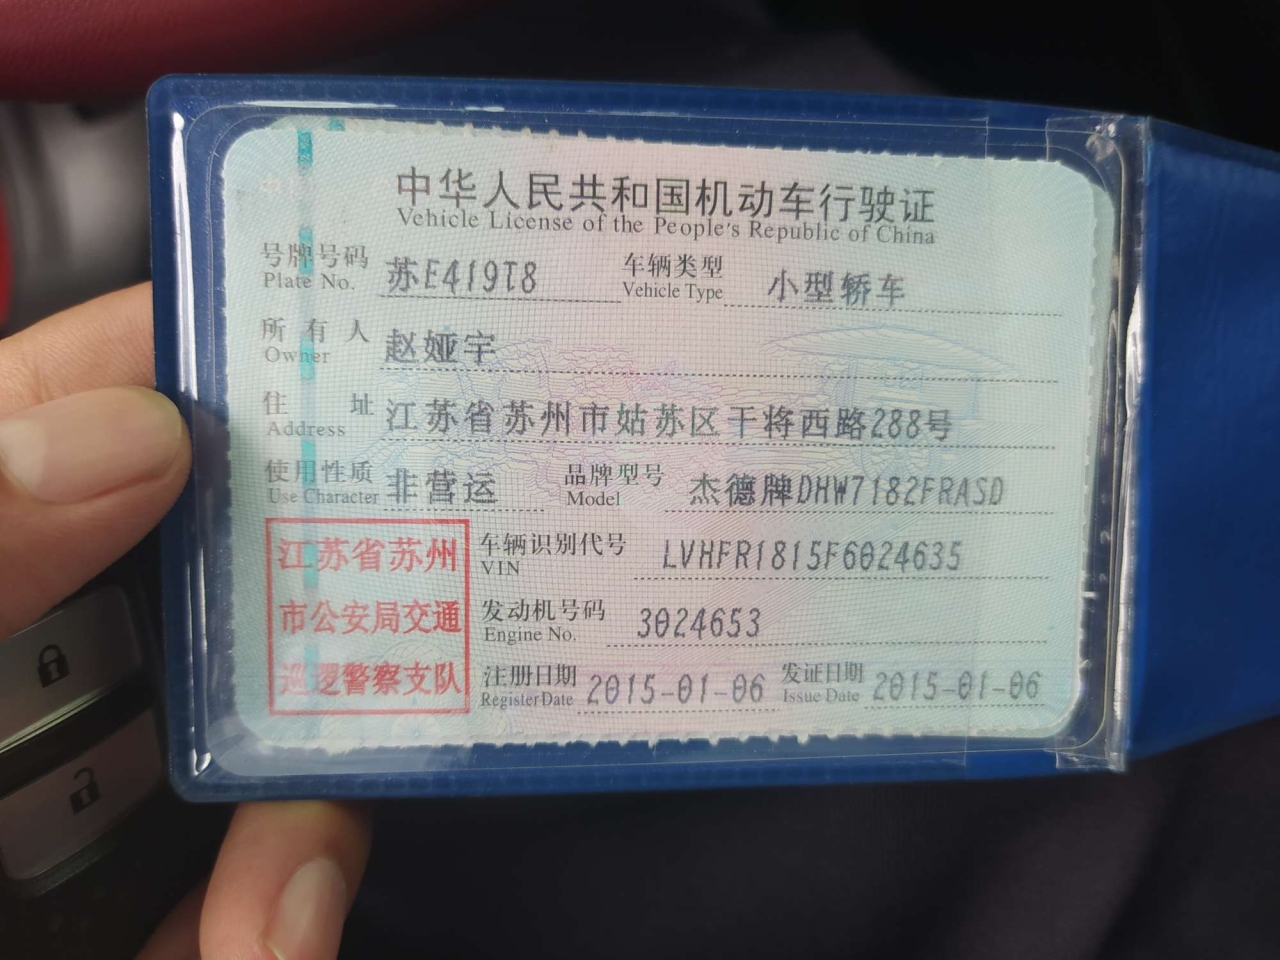 中华人民共和国机动车行驶证
Vehicle License of the People's Republic of China
号牌号码 苏E419T8 车辆类型 小型轿车
Plate No. Vehicle Type
所有人 赵娅宇
Owner
住址 江苏省苏州市姑苏区干将西路288号
Address
使用性质 非营运 品牌型号 杰德牌DHW7182FRASD
Use Character Model
江苏省苏州
市公安局交通
巡逻警察支队
车辆识别代号 LVHFR1815F6024635
VIN
发动机号码 3024653
Engine No.
注册日期 2015-01-06 发证日期 2015-01-06
Register Date Issue Date